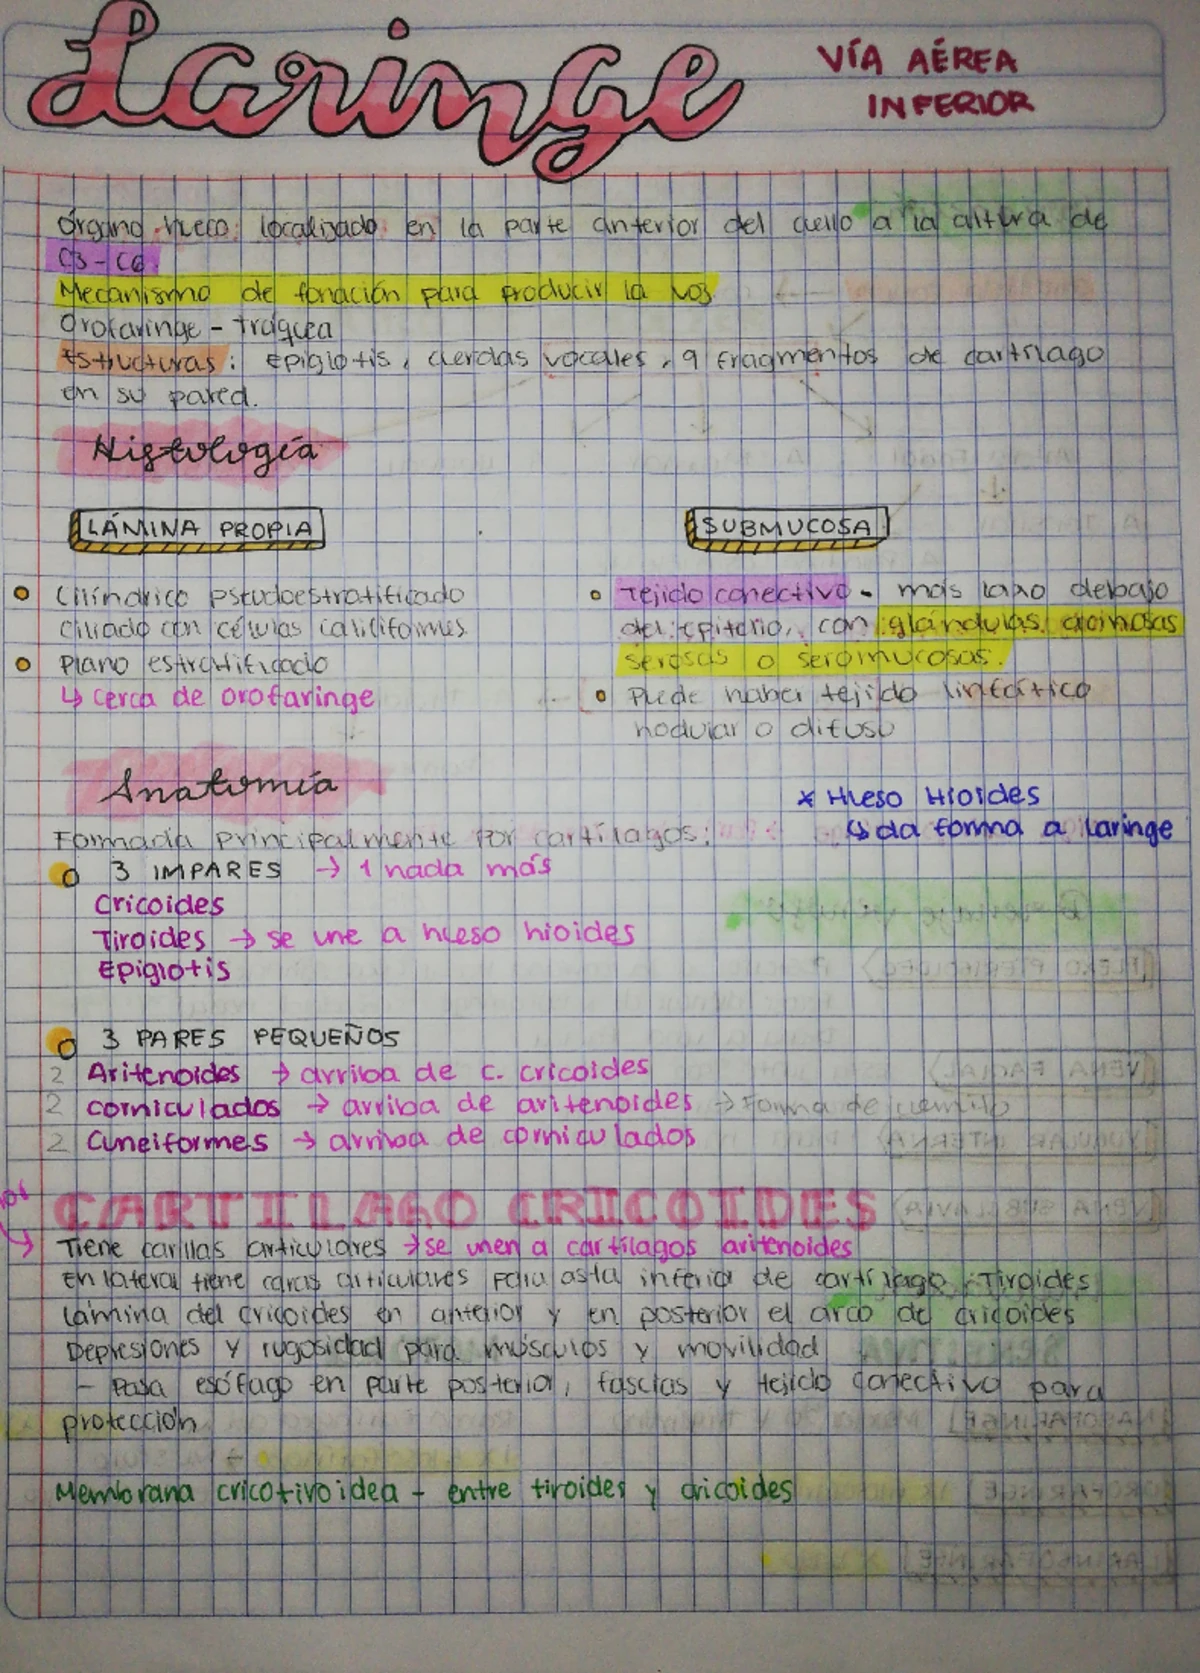 Laringe
VÍA AÉREA
INFERIOR
Órgano hueco localizado en la parte anterior del cuello a la altura de
C3-C6.
Mecanismo de fonación para producir la voz
Orofaringe - Tráquea
Estructuras: Epiglotis, cuerdas vocales, 9 fragmentos de cartílago
en su pared.
Histología
LÁMINA PROPIA
Cilíndrico pseudoestratificado
ciliado con células caliciformes
Plano estratificado
↳ cerca de orofaringe
SUBMUCOSA
Tejido conectivo - más laxo debajo
del epitelio, con glándulas acinosas
serosas o seromucosas.
Puede haber tejido linfático
nodular o difuso
Anatomía
* Hueso Hioides
↳ da forma a laringe
Formada principalmente por cartílagos:
3 IMPARES → 1 nada más
Cricoides
Tiroides → se une a hueso hioides
Epiglotis
3 PARES PEQUEÑOS
2 Aritenoides → arriba de c. cricoides
2 corniculados → arriba de aritenoides → Forma de
2 Cuneiformes → arriba de corniculados
CARTILAGO CRICOIDES
→ Tiene carillas articulares → se unen a cartílagos aritenoides
En lateral tiene caras articulares para asta inferior de cartílago Tiroides
Lámina del cricoides en anterior y en posterior el arco de cricoides
Depresiones y rugosidad para músculos y movilidad
- Pasa esófago en parte posterior, fascias y tejido conectivo para
protección
Membrana cricotiroidea - entre tiroides y cricoides